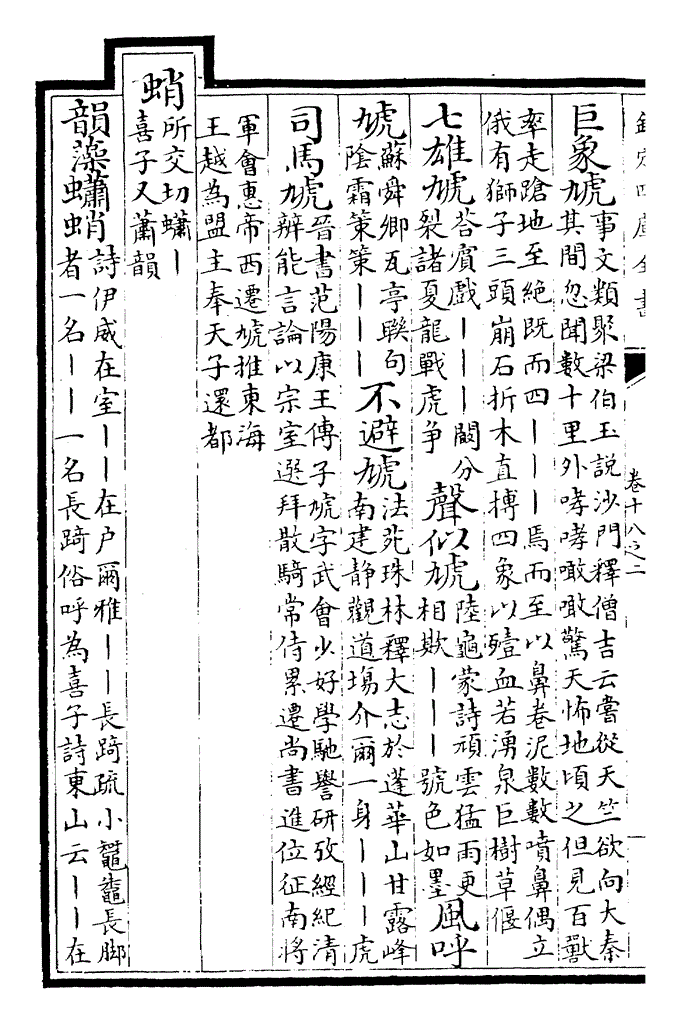 欽定四庫全書 卷十八之二
巨象虓事文類聚梁伯玉説沙門釋僧吉云嘗從天竺欲向大秦
其間忽聞數十里外哮哮噉噉驚天怖地頃之但見百獸
率走蹌地至絶既而四丨丨丨焉而至以鼻卷泥數數噴鼻偶立
俄有獅子三頭崩石折木直搏四象以殪血若湧泉巨樹草偃
七雄虓荅賓戲丨丨丨闞分
裂諸夏龍戰虎争
聲似虓陸龜蒙詩頑雲猛雨更
相欺丨丨丨號色如墨
風呼
虓蘇舜卿瓦亭聯句
陰霜策策丨丨丨
不避虓法苑珠林釋大志於蓬華山甘露峰
南建静觀道塲介爾一身丨丨丨虎
司馬虓晉書范陽康王傳子虓字武會少好學馳譽研攷經紀清
辨能言論以宗室選拜散騎常侍累遷尚書進位征南將
軍會惠帝西遷虓推東海
王越為盟主奉天子還都
蛸所交切蠨丨
喜子又蕭韻
韻藻蠨蛸詩伊威在室丨丨在户爾雅丨丨長踦疏小鼅鼄長脚
者一名丨丨一名長踦俗呼為喜子詩東山云丨丨在